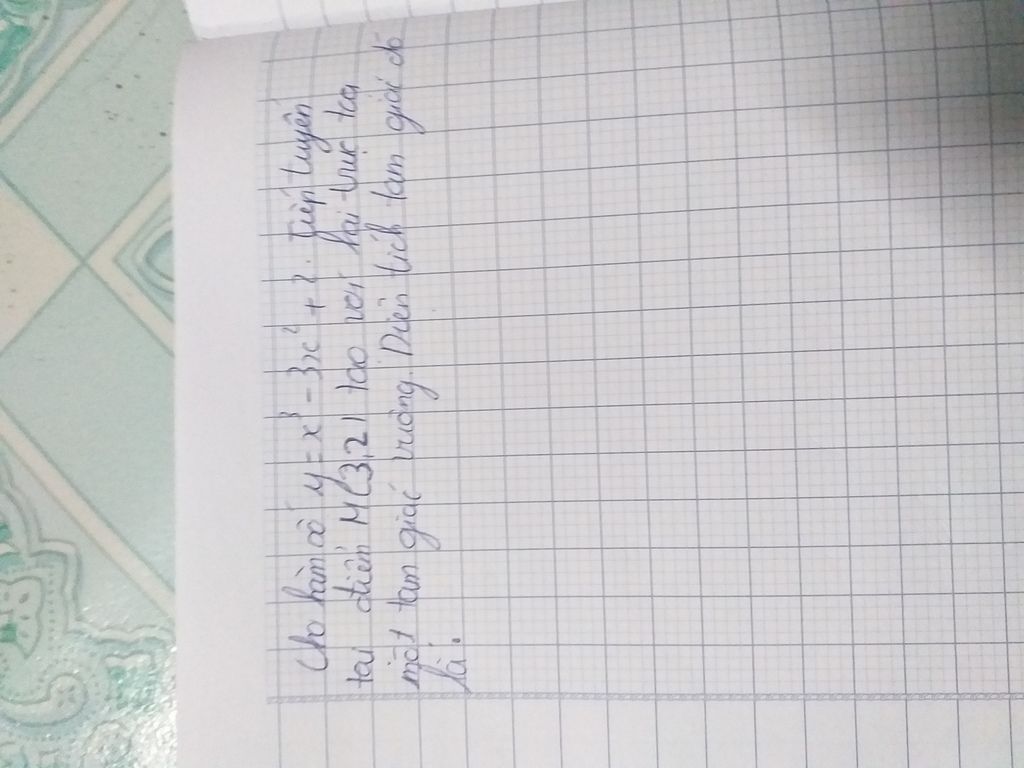 Cho hàm số y = x³ - 3x² + 2. Tiếp tuyến
tại điểm M(3,2) tạo với hai trục tọa
một tam giác vuông. Diện tích tam giác đó
là.